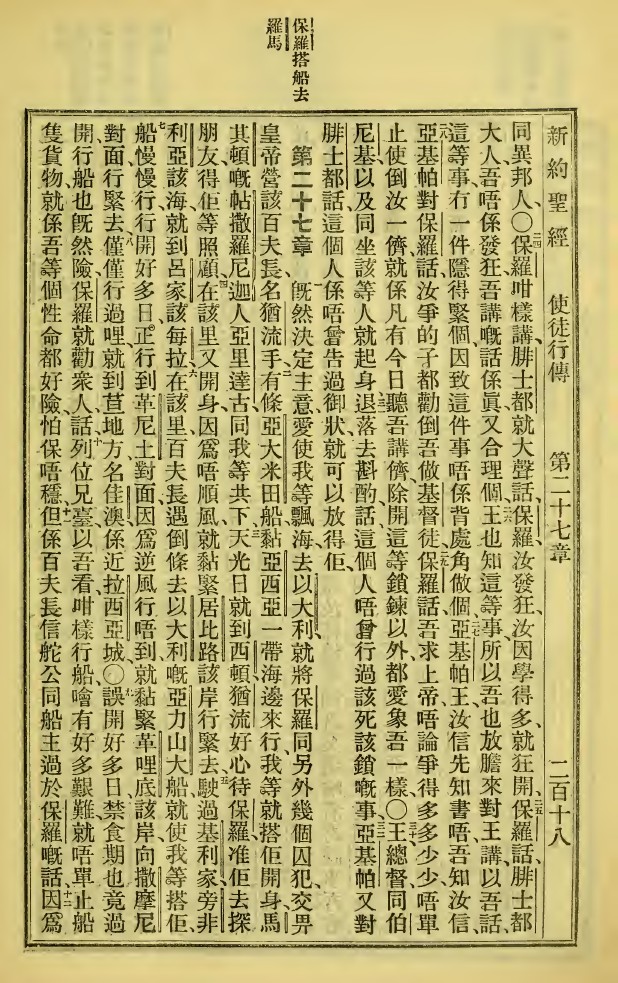 保羅搭船去
羅馬
新約聖經 使徒行傳 第二十七章 二百十八
同異邦人、〇二四保羅咁樣講、腓士都就大聲話、保羅汝發狂、汝因學得多、就狂開、二五保羅話、腓士都
大人吾唔係發狂、吾講嘅話係眞又合理個、二六王也知這等事、所以吾也放膽來對王講、以吾話、
這等事冇一件隱得緊個、因致這件事唔係背處角做個、二七亞基帕王、汝信先知書唔、吾知汝信、
二八亞基帕對保羅話、汝爭的子都勸倒吾做基督徒、二九保羅話、吾求上帝、唔論爭得多多少少、唔單
止使倒汝一儕、就係凡有今日聽吾講儕、除開這等鎖鍊以外、都愛象吾一樣、〇三十王總督同伯
尼基、以及同坐該等人就起身、三一退落去斟酌、話這個人唔曾行過該死該鎖嘅事、三二亞基帕又對
腓士都話、這個人係唔曾告過御狀、就可以放得佢、
第二十七章 一旣然決定主意、愛使我等飄海去以大利、就將保羅同另外幾個囚犯、交畀
皇帝營該百夫長名猶流手、二有條亞大米田船、黏亞西亞一帶海邊來行、我等就搭佢開身、馬
其頓嘅帖撒羅尼迦人亞里達古、同我等共下、三天光日就到西頓、猶流好心待保羅、准佢去探
朋友、得佢等照顧、四在該里又開身、因爲唔順風、就黏緊居比路該岸行緊去、五駛過基利家旁非
利亞該海、就到呂家該每拉、六在該里百夫長遇倒條去以大利嘅亞力山大船、就使我等搭佢、
七船慢慢行、行開好多日、正行到革尼土對面、因爲逆風行唔到、就黏緊革哩底該岸、向撒摩尼
對面行緊去、八僅僅行過哩、就到荁地方名佳澳、係近拉西亞城、〇九誤開好多日、禁食期也竟過
開、行船也旣然險、保羅就勸衆人話、十列位兄臺、以吾看咁樣行船、噲有好多艱難、就唔單止船
隻貨物、就係吾等個性命都好險、怕保唔穩、十一但係百夫長信舵公同船主、過於保羅嘅話、十二因爲